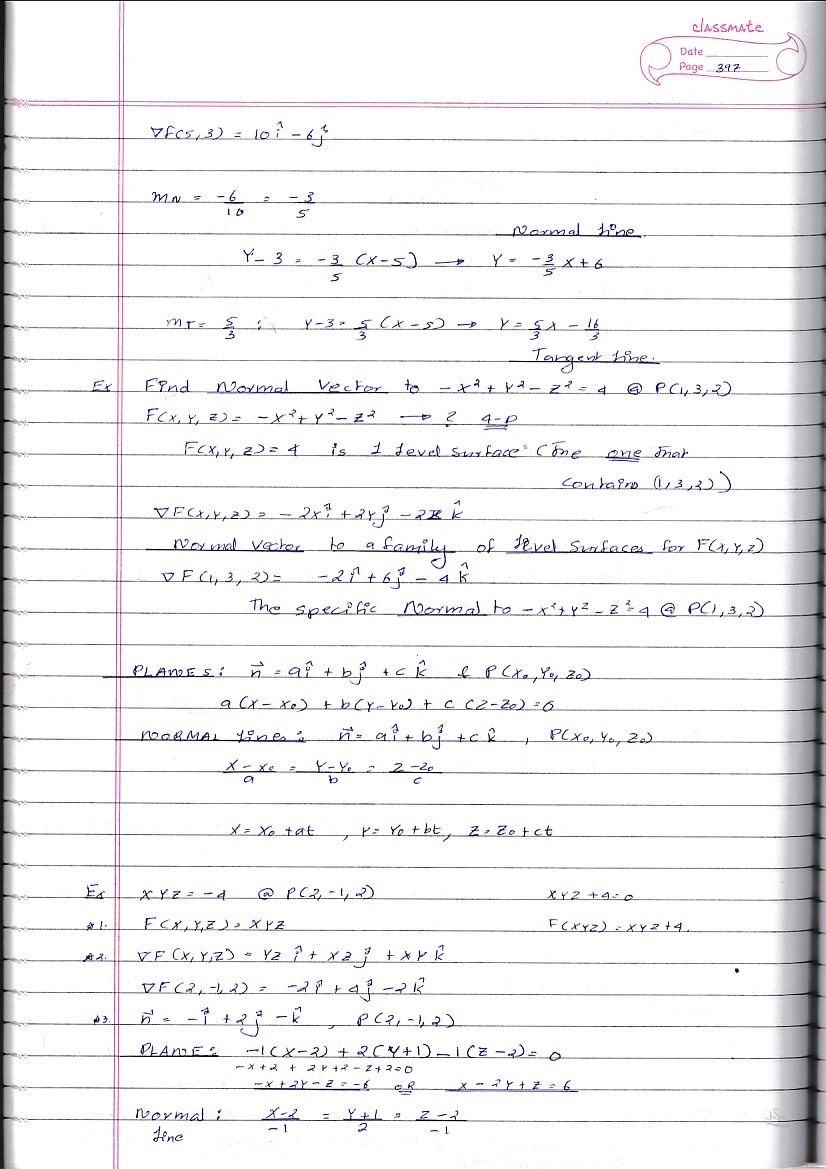 classmate
Date
Page 392
∇F(5,3) = 10î - 6ĵ
mN = -6/10 = -3/5
Normal Line.
Y-3 = -3/5 (X-5) → Y = -3/5 X+6
mT = 5/3 : Y-3 = 5/3 (X-5) → Y = 5/3 X - 16/3
Tangent Line.
Ex Find Normal Vector to -X²+Y²-Z²=4 @ P(1,3,2)
F(X,Y,Z) = -X²+Y²-Z² → ? 4-D
F(X,Y,Z)=4 is 1 level surface (The one that
contains (1,3,2))
∇F(X,Y,Z) = -2xî + 2Yĵ - 2Z k̂
Normal vector to a family of level surfaces for F(X,Y,Z)
∇F(1,3,2) = -2î + 6ĵ - 4k̂
The specific Normal to -X²+Y²-Z²=4 @ P(1,3,2)
PLANES: n⃗ = aî + bĵ + ck̂ & P(X₀,Y₀,Z₀)
a(X-X₀) + b(Y-Y₀) + c(Z-Z₀)=0
NORMAL Lines: n⃗ = aî + bĵ + ck̂ , P(X₀,Y₀,Z₀)
X-X₀/a = Y-Y₀/b = Z-Z₀/c
X = X₀ + at , Y = Y₀ + bt, Z = Z₀ + ct
Ex XYZ = -4 @ P(2,-1,2) XYZ +4=0
#1. F(X,Y,Z) = XYZ F(XYZ) = XYZ+4.
#2. ∇F(X,Y,Z) = YZ î + XZ ĵ + XY k̂
∇F(2,-1,2) = -2î + 4ĵ - 2k̂
#3. n⃗ = -î + 2ĵ - k̂ , P(2,-1,2)
PLANE: -1(X-2) + 2(Y+1) - 1(Z-2) = 0
-X+2 + 2Y+2 - Z+2=0
-X+2Y-Z=-6 OR X-2Y+Z=6
Normal: X-2/-1 = Y+1/2 = Z-2/-1
Line